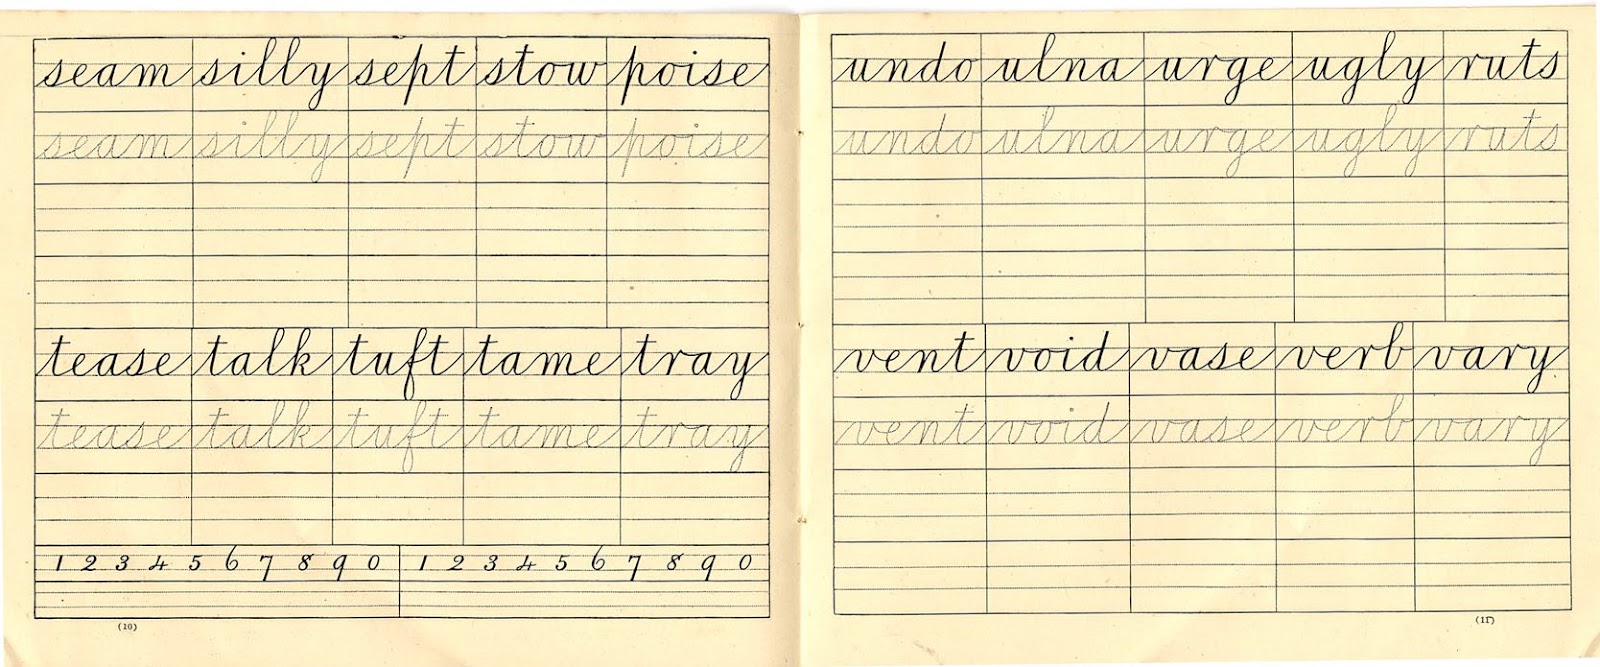 seam silly sept stow poise
seam silly sept stow poise
tease talk tuft tame tray
tease talk tuft tame tray
1 2 3 4 5 6 7 8 9 0 1 2 3 4 5 6 7 8 9 0
(10)
undo ulna urge ugly ruts
undo ulna urge ugly ruts
vent void vase verb vary
vent void vase verb vary
(11)